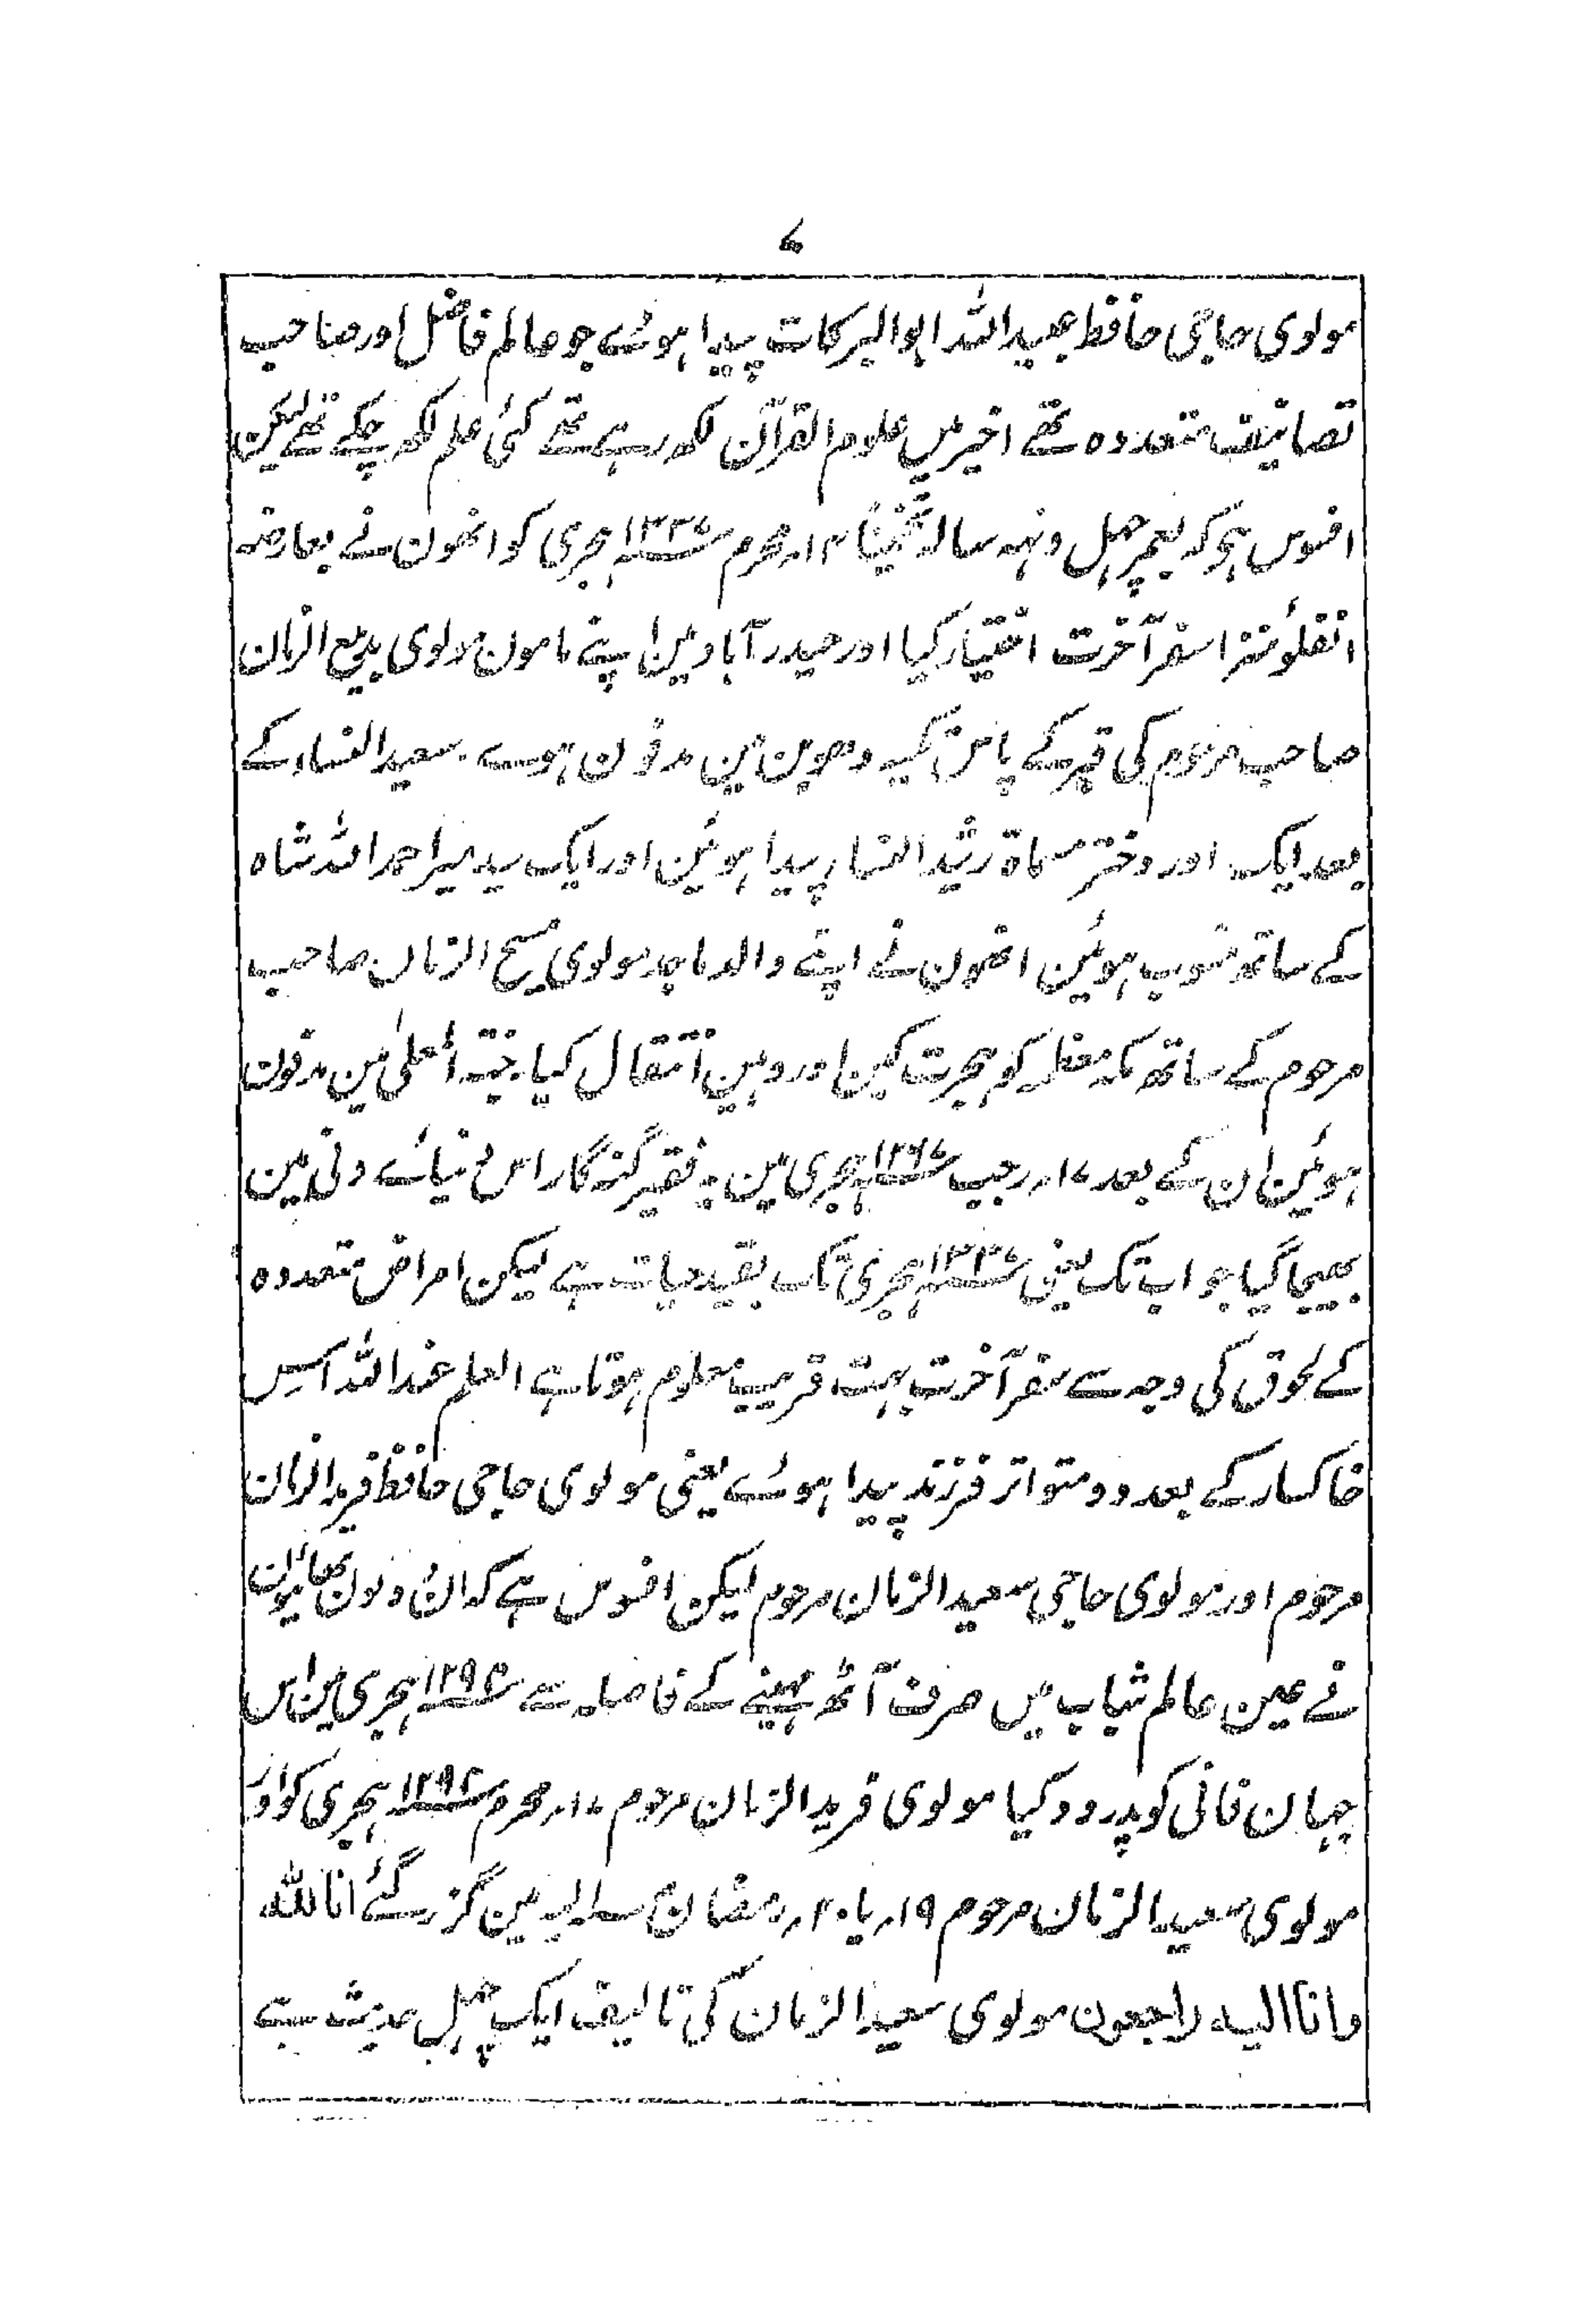 ۷
مولوی حاجی حافظ عبیداللہ ابوالبرکات پیدا ہوئے جو عالم فاضل اور صاحب
تصانیف متعددہ تھے اخیر میں علوم القرآن لکھ رہے تھے کئی علم لکھ چکے تھے لیکن
افسوس ہی کہ بعمر چہل و نہہ سالہ تخمیناً ۱۴؍ محرم ۱۳۳۷؁ ہجری کو انھون نے بعارضہ
انفلوئنزا سفر آخرت اختیار کیا اور حیدرآباد مین اپنے مامون مولوی بدیع الزمان
صاحب مرحوم کی قبر کے پاس تکیہ مین مدفون ہوے۔ سعید النساء کے
بعد ایک اور دختر مسماۃ رشید النساء پیدا ہوئین اور ایک سید میر احمد اللہ شاہ
کے ساتھ منسوب ہوئین انھون نے اپنے والد ماجد مولوی مسیح الزمان صاحب
مرحوم کے ساتھ مکہ معظمہ کو ہجرت کین اور وہین انتقال کیا جنۃ المعلیٰ مین مدفون
ہوئین ان کے بعد ۱۷؍ رجب ۱۲۶۷؁ ہجری مین یہ فقیر گنہ گار اس دنیائے دنی مین
بھیجا گیا جو اب تک یعنی ۱۳۳۷؁ ہجری تک بقید حیات ہے لیکن امراض متعددہ
کے لحوق کی وجہ سے سفر آخرت بہت قریب معلوم ہوتا ہے العلم عند اللہ اس
خاکسار کے بعد دو متواتر فرزند پیدا ہوئے یعنی مولوی حاجی حافظ فرید الزمان
مرحوم اور مولوی حاجی سعید الزمان مرحوم لیکن افسوس ہے کہ ان دونون بھائیون
نے عین عالم شباب میں صرف آٹھ مہینے کے فاصلہ سے ۱۲۹۴؁ ہجری مین اس
جہان فانی کو پدرود کیا مولوی فرید الزمان مرحوم ۱۷؍ محرم ۱۲۹۴؁ ہجری کو اور
مولوی سعید الزمان مرحوم ۱۹؍ یا ۲۰؍ رمضان مین گزر گئے انا للہ
وانا الیہ راجعون مولوی سعید الزمان کی تالیف ایک چہل حدیث ہے